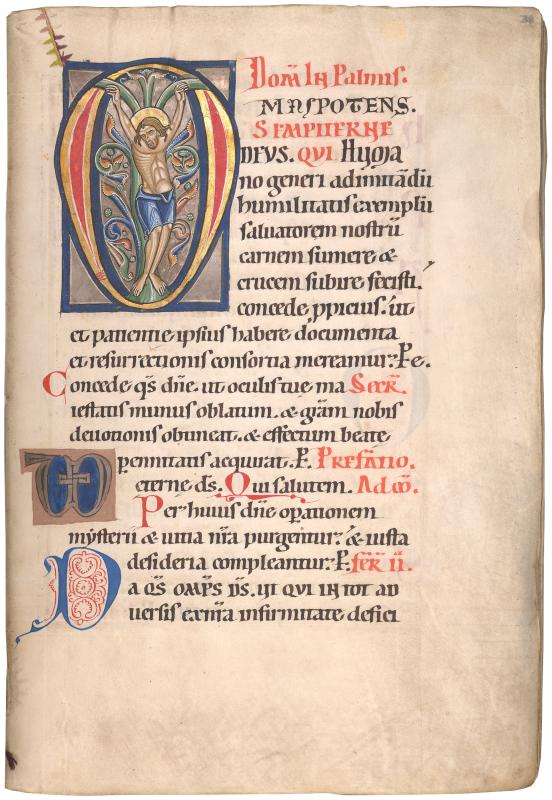 Dom̄ In Palmis.
MNSPOTENS.
SEMPITERNE
DEUS. QUI Huma
no generi ad imitādū
humilitatis exemplū
saluatorem nostrū
carnem sumere &
crucem subire fecisti.
concede ꝓpicius. ut
et patientie ipsius habere documenta
et resurrectionis consortia mereamur. Pe.
Concede qs̄ dn̄e. ut oculis tue ma Secr̄.
iestatis munus oblatum. & grām nobis
deuotionis obtineat. & effectum beate
ꝑennitatis acquirat. P. Prefatio.
eterne ds̄. Qui salutem. Ad cō.
Per huius dn̄e oꝑationem
mysterii & uitia nr̄a purgentur. & iusta
desideria compleantur. P. fēr II.
Da qs̄ omp̄s ds̄. ut qui in tot ad
uersis ex nr̄a infirmitate defici